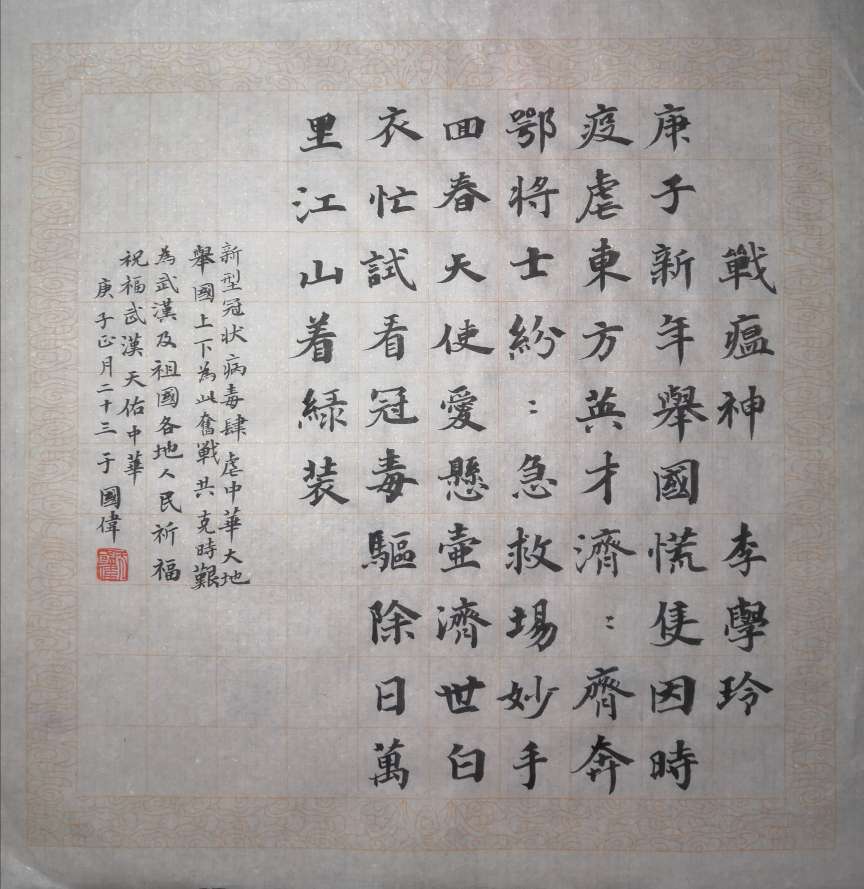 戰瘟神 李學玲
庚子新年舉國慌隻因時
疫虐東方英才濟﹕齊奔
鄂將士紛﹕急救場妙手
回春天使愛懸壺濟世白
衣忙試看冠毒驅除日萬
里江山着綠装
新型冠状病毒肆虐中華大地
舉國上下為此奮戰共克時艱
為武漢及祖國各地人民祈福
祝福武漢天佑中華
庚子正月二十三于國偉